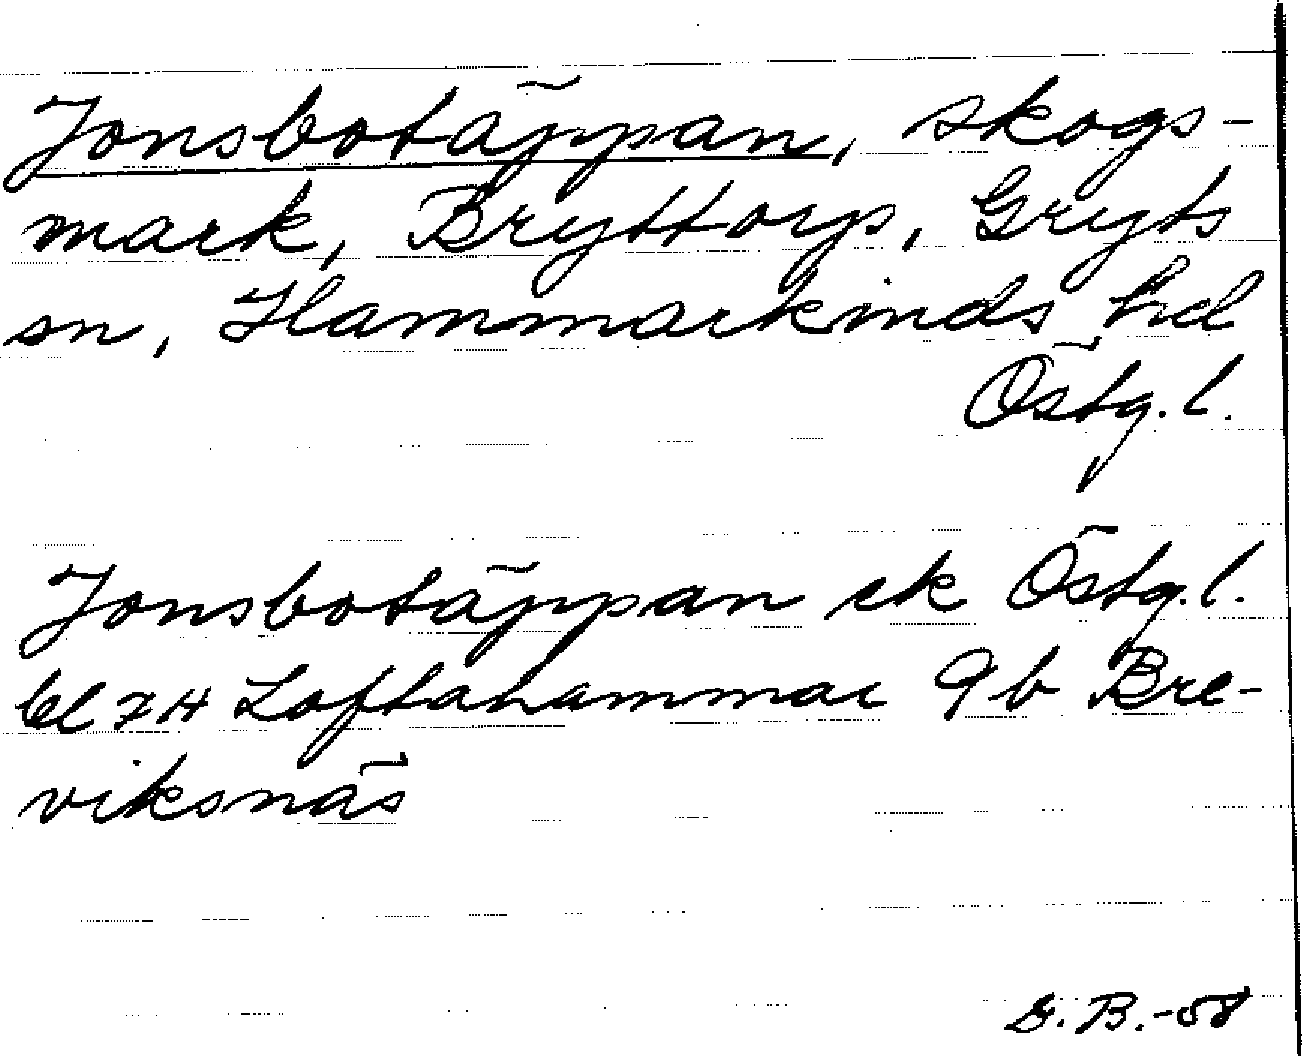 Jonsbotäppan, skogs-
mark, Bryttorp, Gryts
sn, Hammarkinds hd
Östg. l.
Jonsbotäppan ek Östg. l.
bl 7 H Loftahammar 9b Bre-
viksnäs
G. B. -58